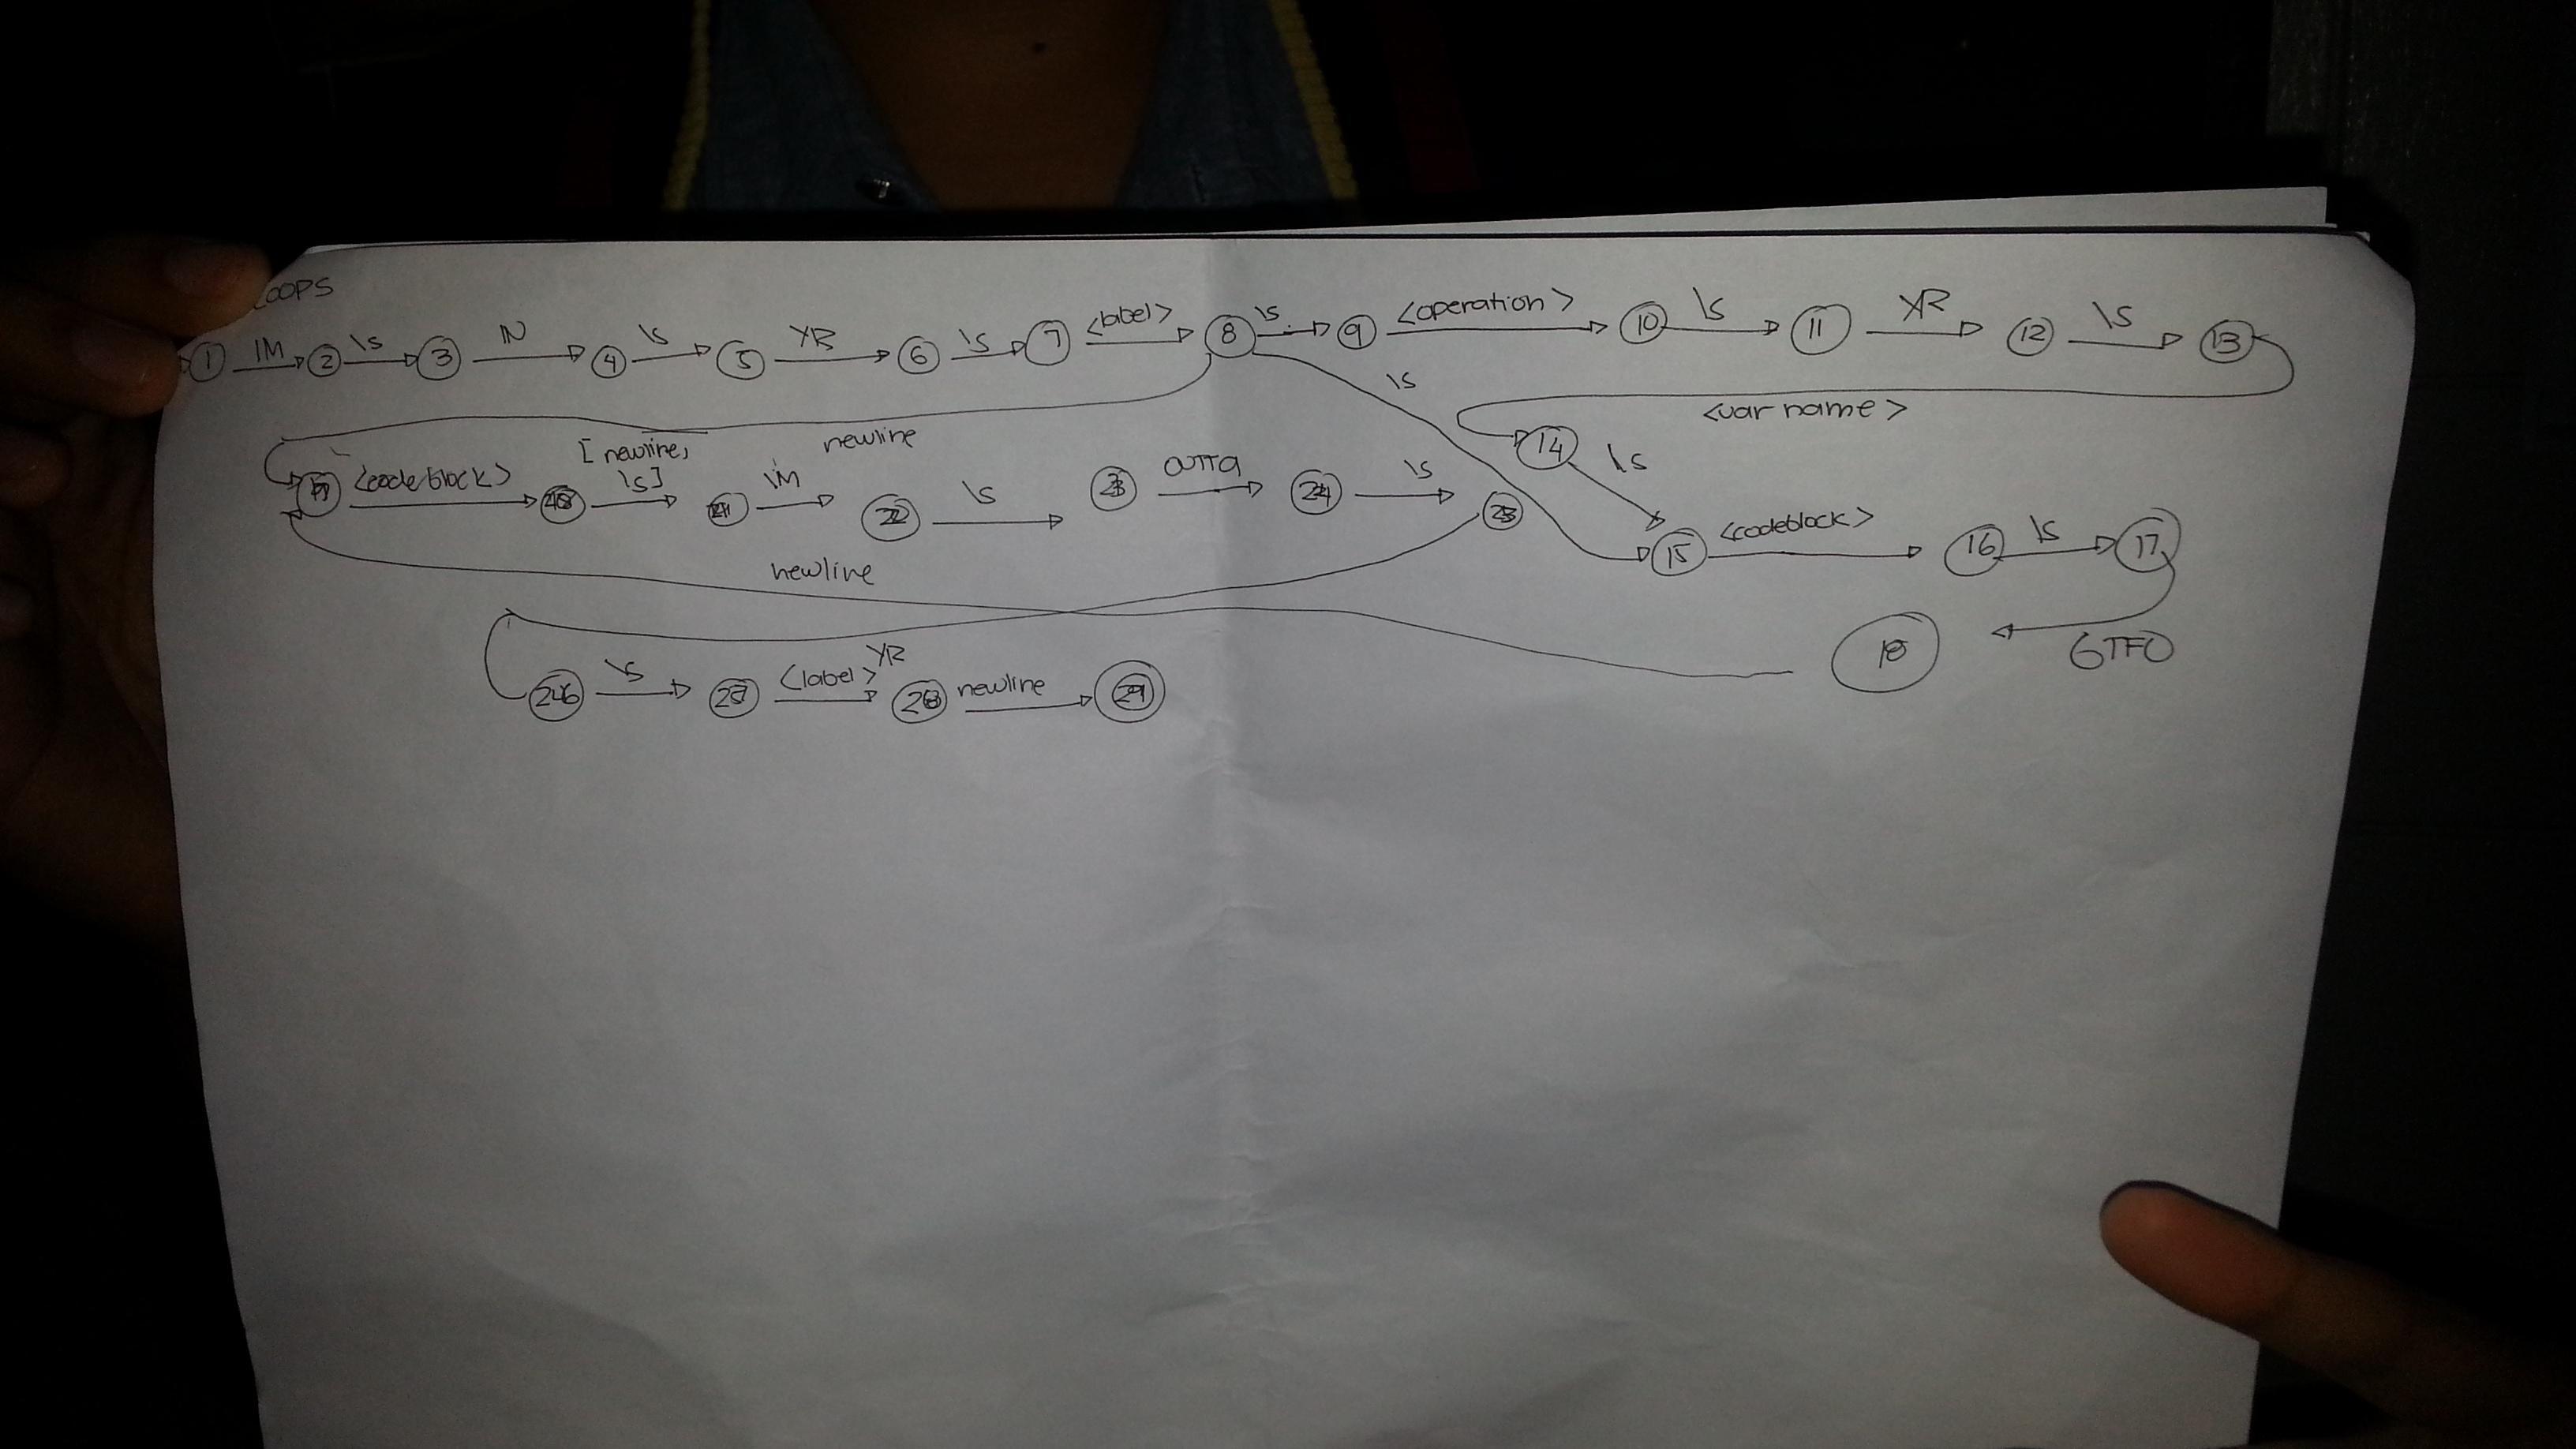 LOOPS
1 IM 2 \S 3 IN 4 \S 5 YR 6 \S 7 <label> 8 \S 9 <operation> 10 \S 11 YR 12 \S 13
\S
<var name>
newline
<codeblock> [newline, \S] IM 22 \S 23 OUTTA 24 \S 25 14 \S
15 <codeblock> 16 \S 17
newline
18 GTFO
YR
26 \S 27 <label> 28 newline 29